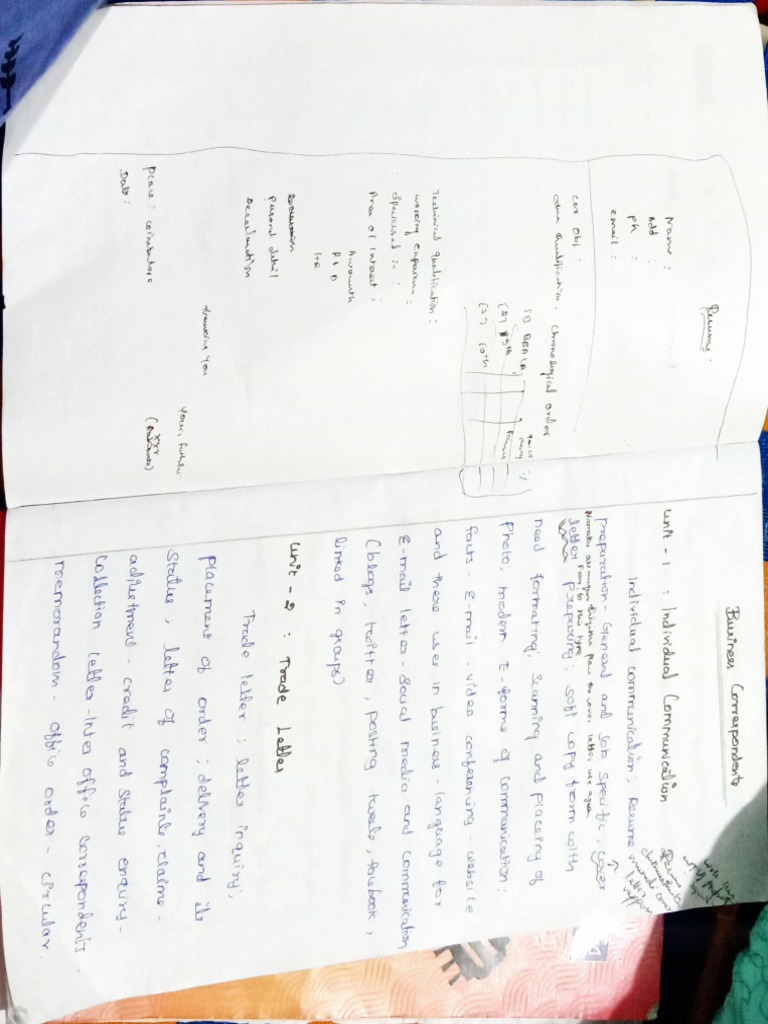 Resume :
Name :
Add :
Ph :
email :
car obj :
Qualification : chronological order
(1) BBA CA
(2) 12th
(3) 10th
Technical Qualification :
working experience :
Specialised in :
Area of interest :
Accounts
R & D
HR
Personal detail
Decelaration
thanking you
Your, faithfu
(XXX
Place : coimbatore
Date :
Business Correspondents
Unit - 1 : Individual Communication
Individual communication; Resume
preparation - General and Job Specific, cover
letter preparing; soft copy from with
need formating, scanning and placeing of
photo, modern E-forms of communication;
facts - E-mail - video conferencing - website
and there user in business - language for
E-mail letter - Social media and communication
(blogs, twitter, posting tweets, facebook,
linked in groups)
Unit - 2 : Trade Letter
Trade letter; letter inquiry,
placement of order; delivery and its
status, letter of complaints, claims -
adjustment - credit and status enquiry -
collection letter - Inter office correspondents
memorandom - office order - circular.